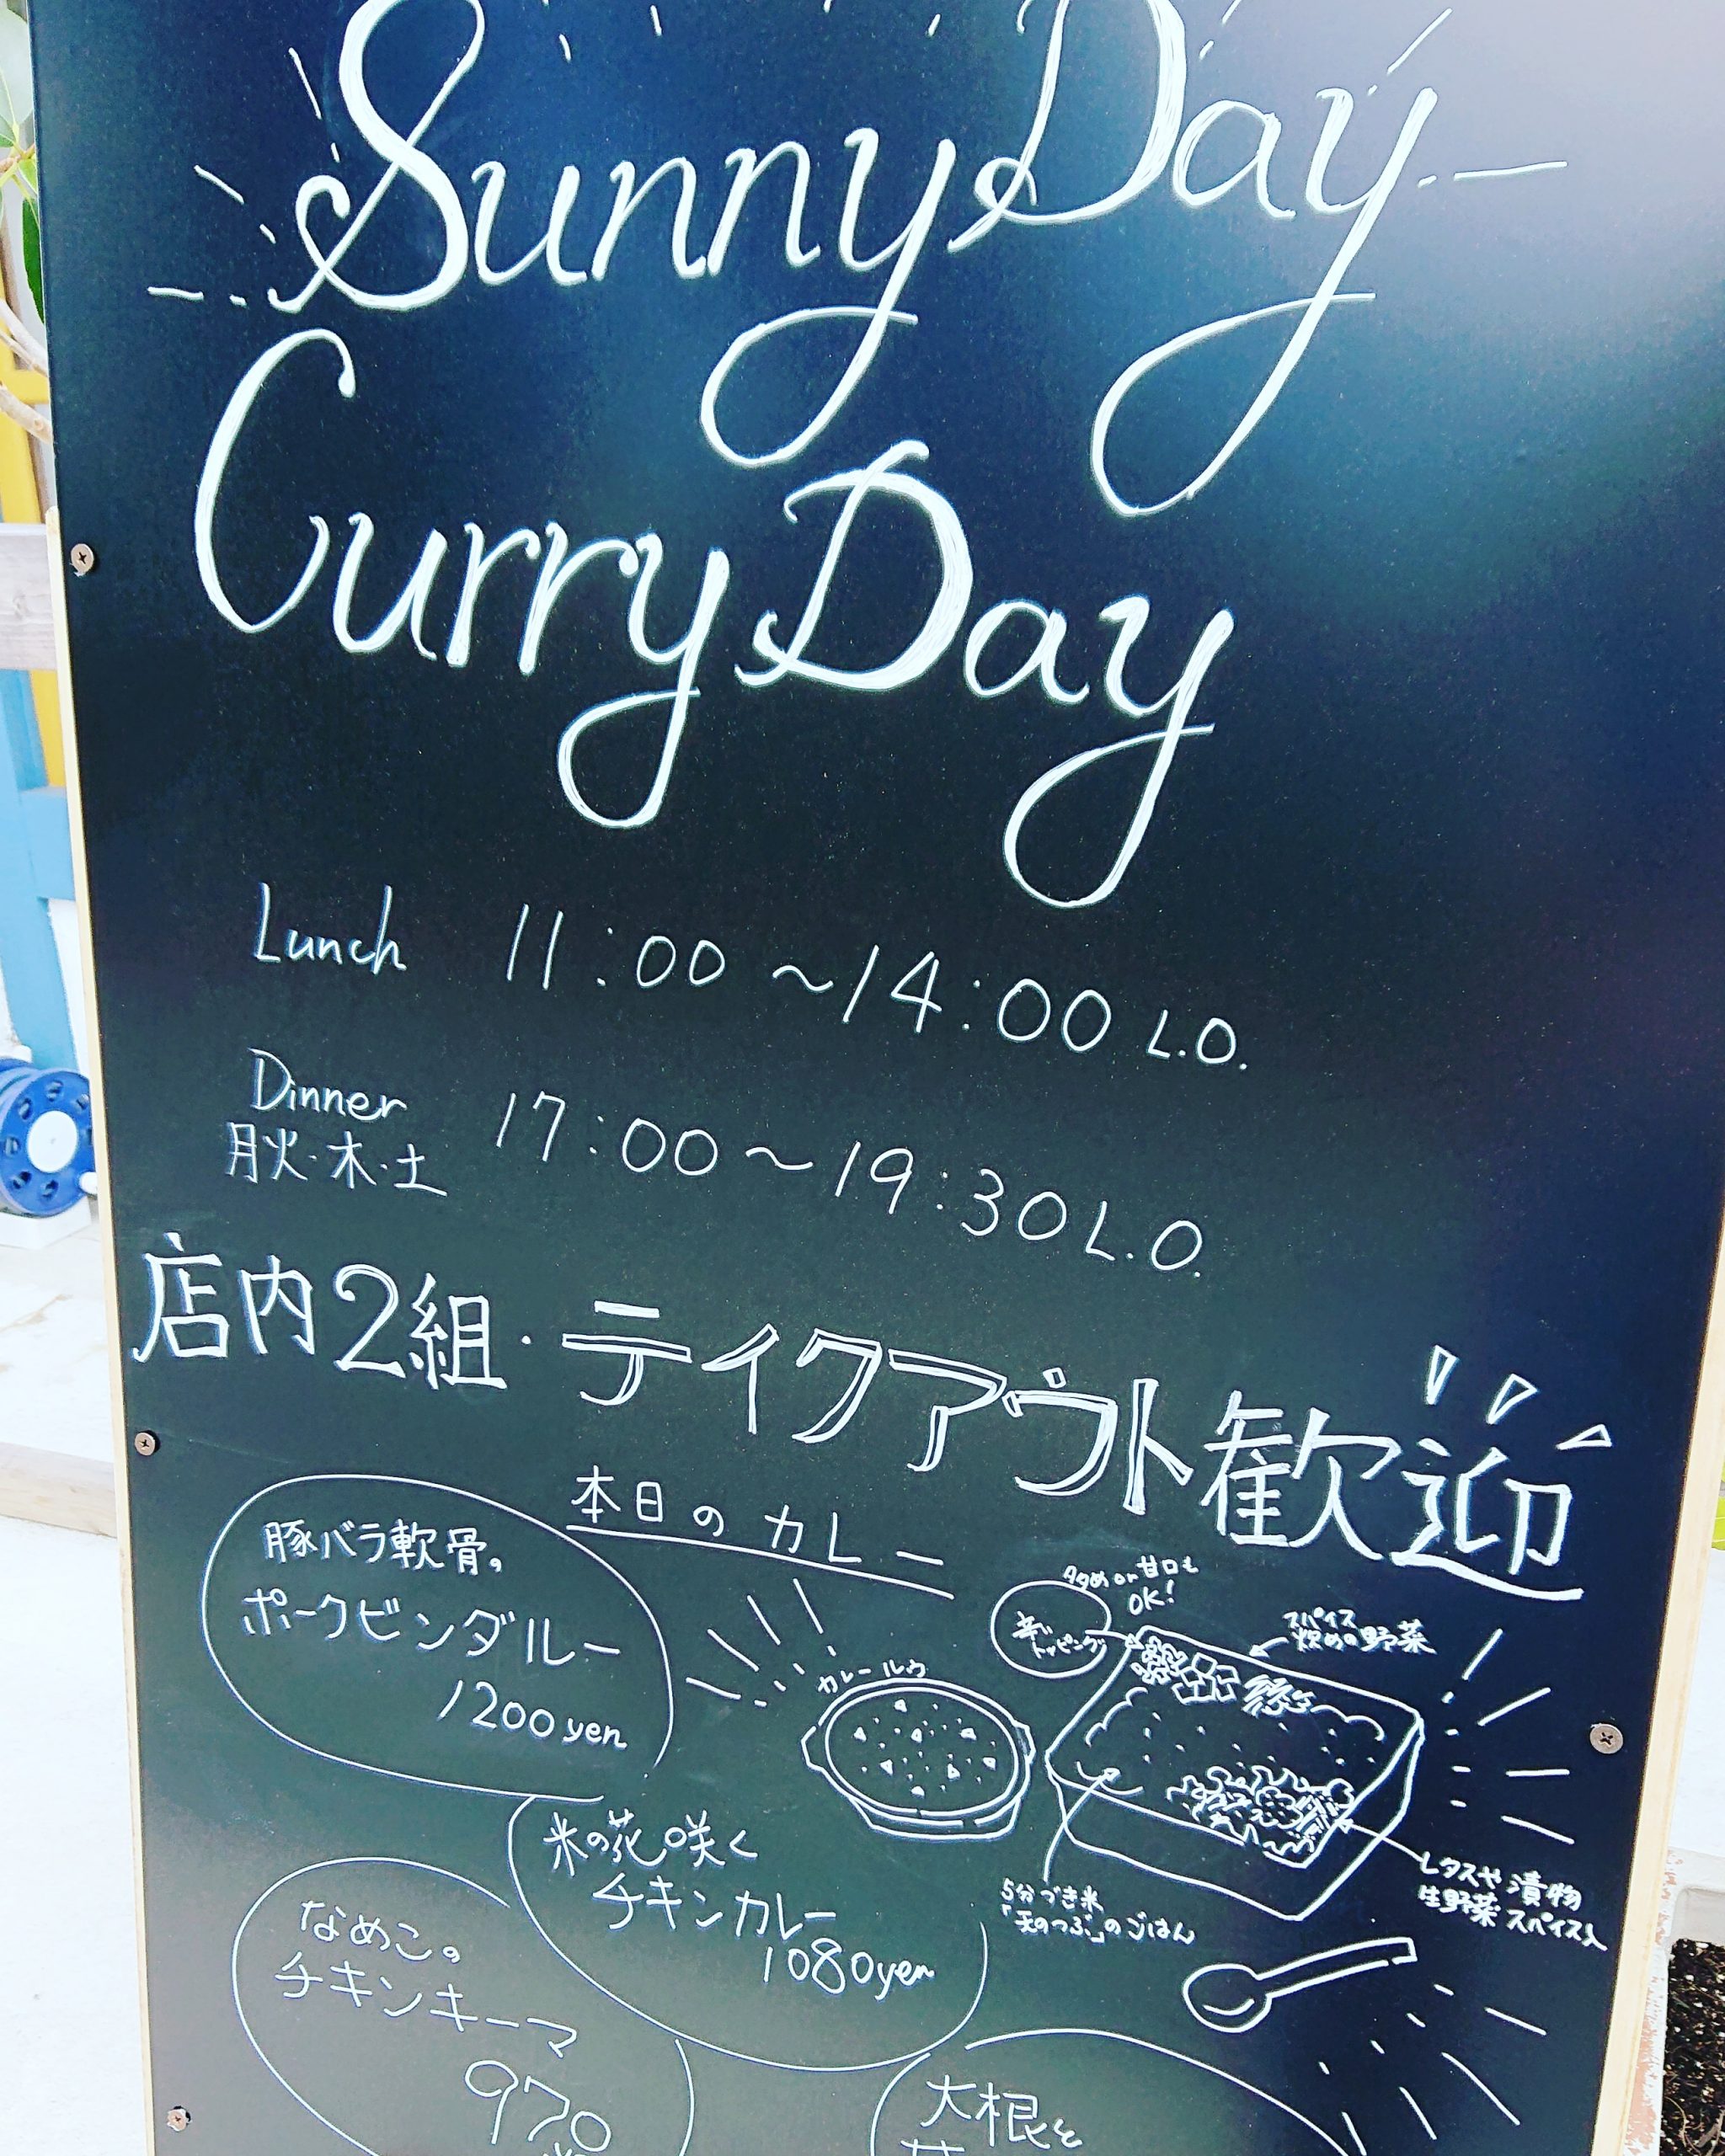 Sunny Day
Curry Day
Lunch 11:00 ~ 14:00 L.O.
Dinner 17:00 ~ 19:30 L.O.
月火・木・土
店内2組・テイクアウト歓迎
本日のカレー
豚バラ軟骨。
ポークビンダルー
1200yen
米の花咲く
チキンカレー
1080yen
なめこの
チキンキーマ
970
大根と
カレールウ
辛い
トッピング
タタめ or 甘口も
OK!
スパイス
炒めの野菜
5分づき米
「天のつぶ」のごはん
レタスや漬物
生野菜 スパイス入